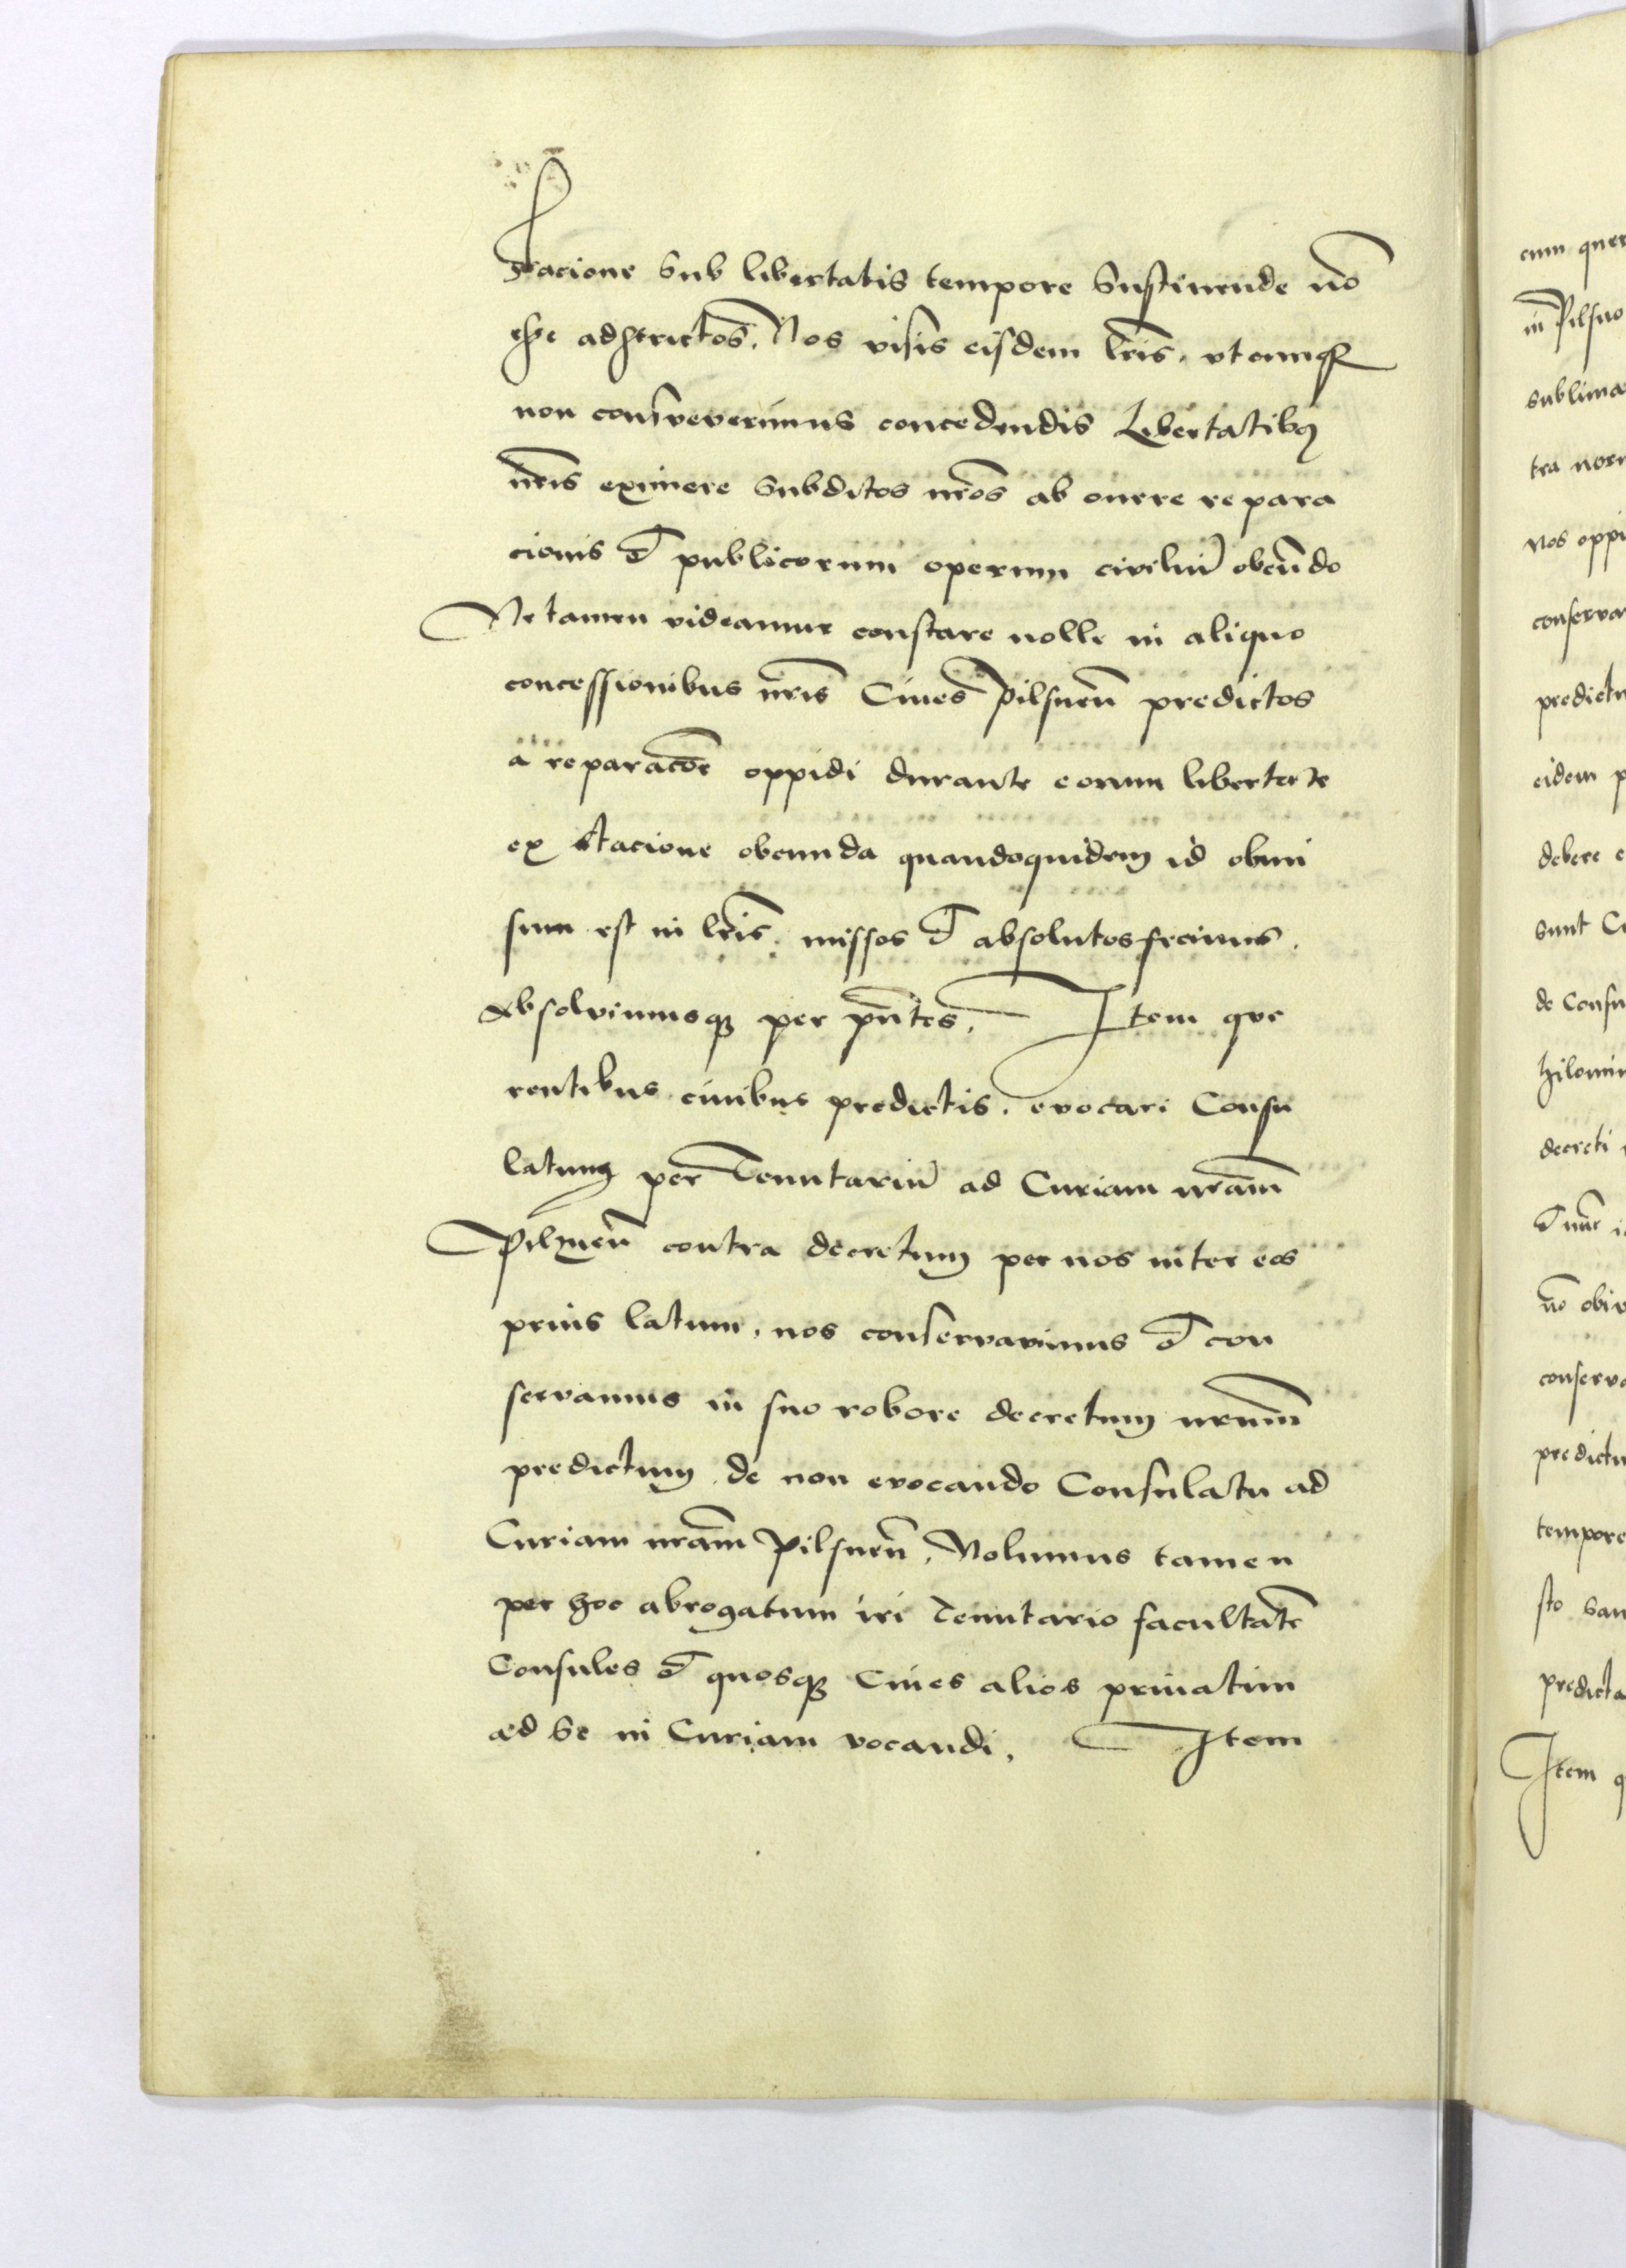 stacione sub libertatis tempore sustinende nō
esse adstrictos. Nos visis eisdem lr̄is, utcumq
non consveverimus concedendis Libertatibq
nr̄is eximere subditos nr̄os ab onere repara
cionis et publicorum operum civiliū obeūdo
Ne tamen videamur constare nolle in aliquo
concessionibus nr̄is Ciues Pilsnen̄ predictos
a reparacōe oppidi durante eorum libertate
ex stacione obeunda quandoquidem id
sum est in lr̄is, missos et absolutos fecimus.
Absolvimusq per pn̄tes. Item que
rentibus ciuibus predictis, evocari Consu
latum per Tenutariū ad Curiam nr̄am
Pilznen̄ contra decretum per nos inter eos
prius latum, nos conservavimus et con
servamus in suo robore decretum nr̄um
predictum de non evocando Consulatu ad
Curiam nr̄am Pilsnen̄, Nolumus tamen
per hoc abrogatum iri Tenutario facultatē
Consules et quosq Ciues alios priuatim
ad se in Curiam vocandi, Item
cum quer
in Pilsno
sublima
tra nor
Nos oppi
conserva
predictu
eidem p
debere e
sunt C
de Consu
decreti
et nūc i
nō obi
conserva
predictu
tempore
sto san
predicta
Item q